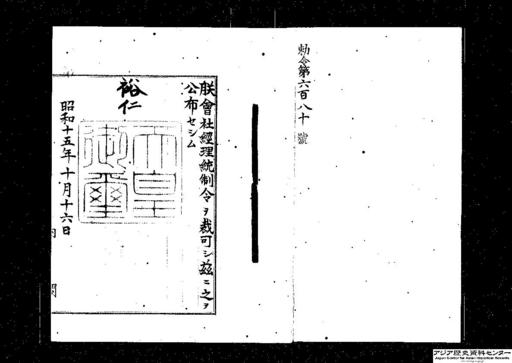 勅令第六百八十號
朕會社經理統制令ヲ裁可シ茲ニ之ヲ
公布セシム
裕仁
天皇
御璽
昭和十五年十月十六日
内閣
アジア歴史資料センター
Japan Center for Asian Historical Records